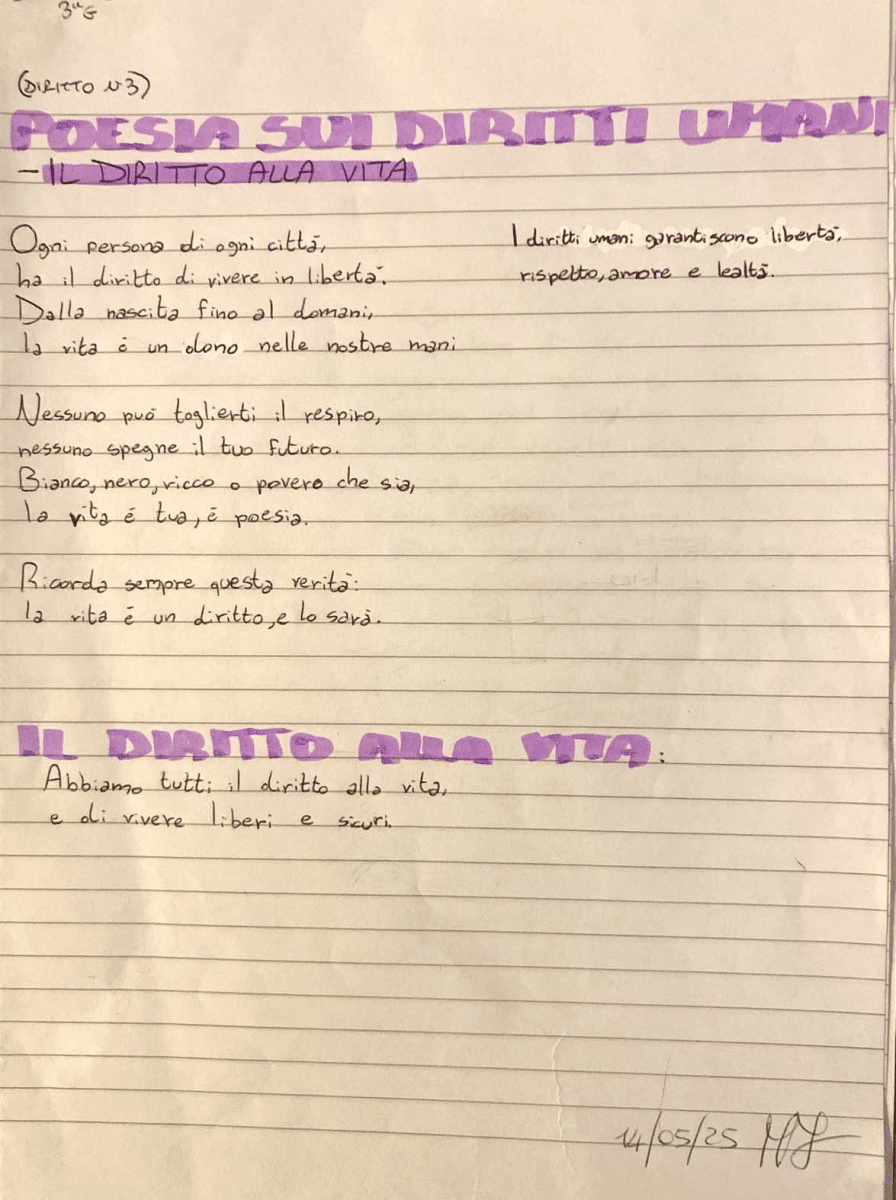 3ªG
(DIRITTO N3)
POESIA SUI DIRITTI UMANI
- IL DIRITTO ALLA VITA
Ogni persona di ogni città,
ha il diritto di vivere in libertà.
Dalla nascita fino al domani,
la vita è un dono nelle nostre mani
Nessuno può toglierti il respiro,
nessuno spegne il tuo futuro.
Bianco, nero, ricco o povero che sia,
la vita è tua, è poesia.
Ricorda sempre questa verità:
la vita è un diritto, e lo sarà.
I diritti umani garantiscono libertà,
rispetto, amore e lealtà.
IL DIRITTO ALLA VITA:
Abbiamo tutti il diritto alla vita,
e di vivere liberi e sicuri.
14/05/25